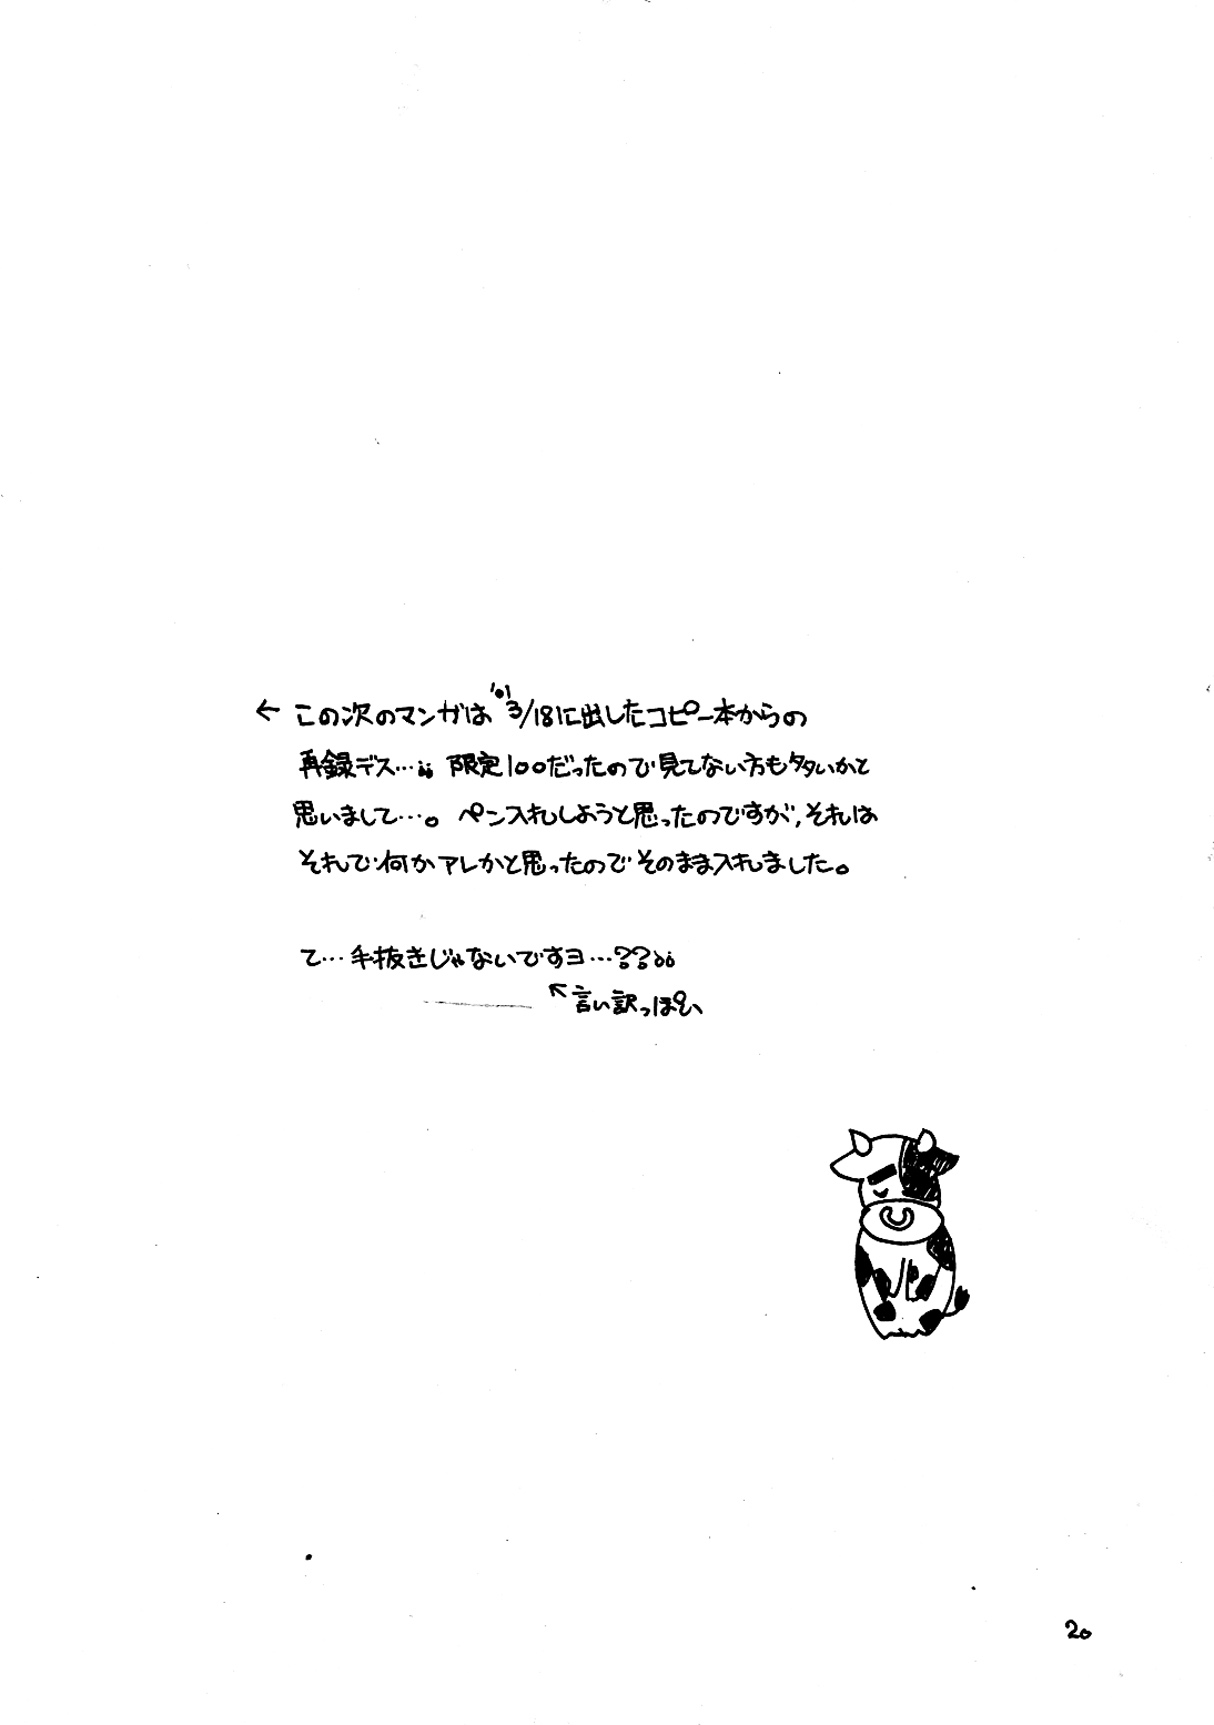 ← この次のマンガは '01 3/18に出したコピー本からの
再録デス…;; 限定100だったので見てない方も多いかと
思いまして…。ペン入れしようと思ったのですが、それは
それで何かアレかと思ったのでそのまま入れました。
て…手抜きじゃないですヨ…??;;
↖言い訳っぽい
20